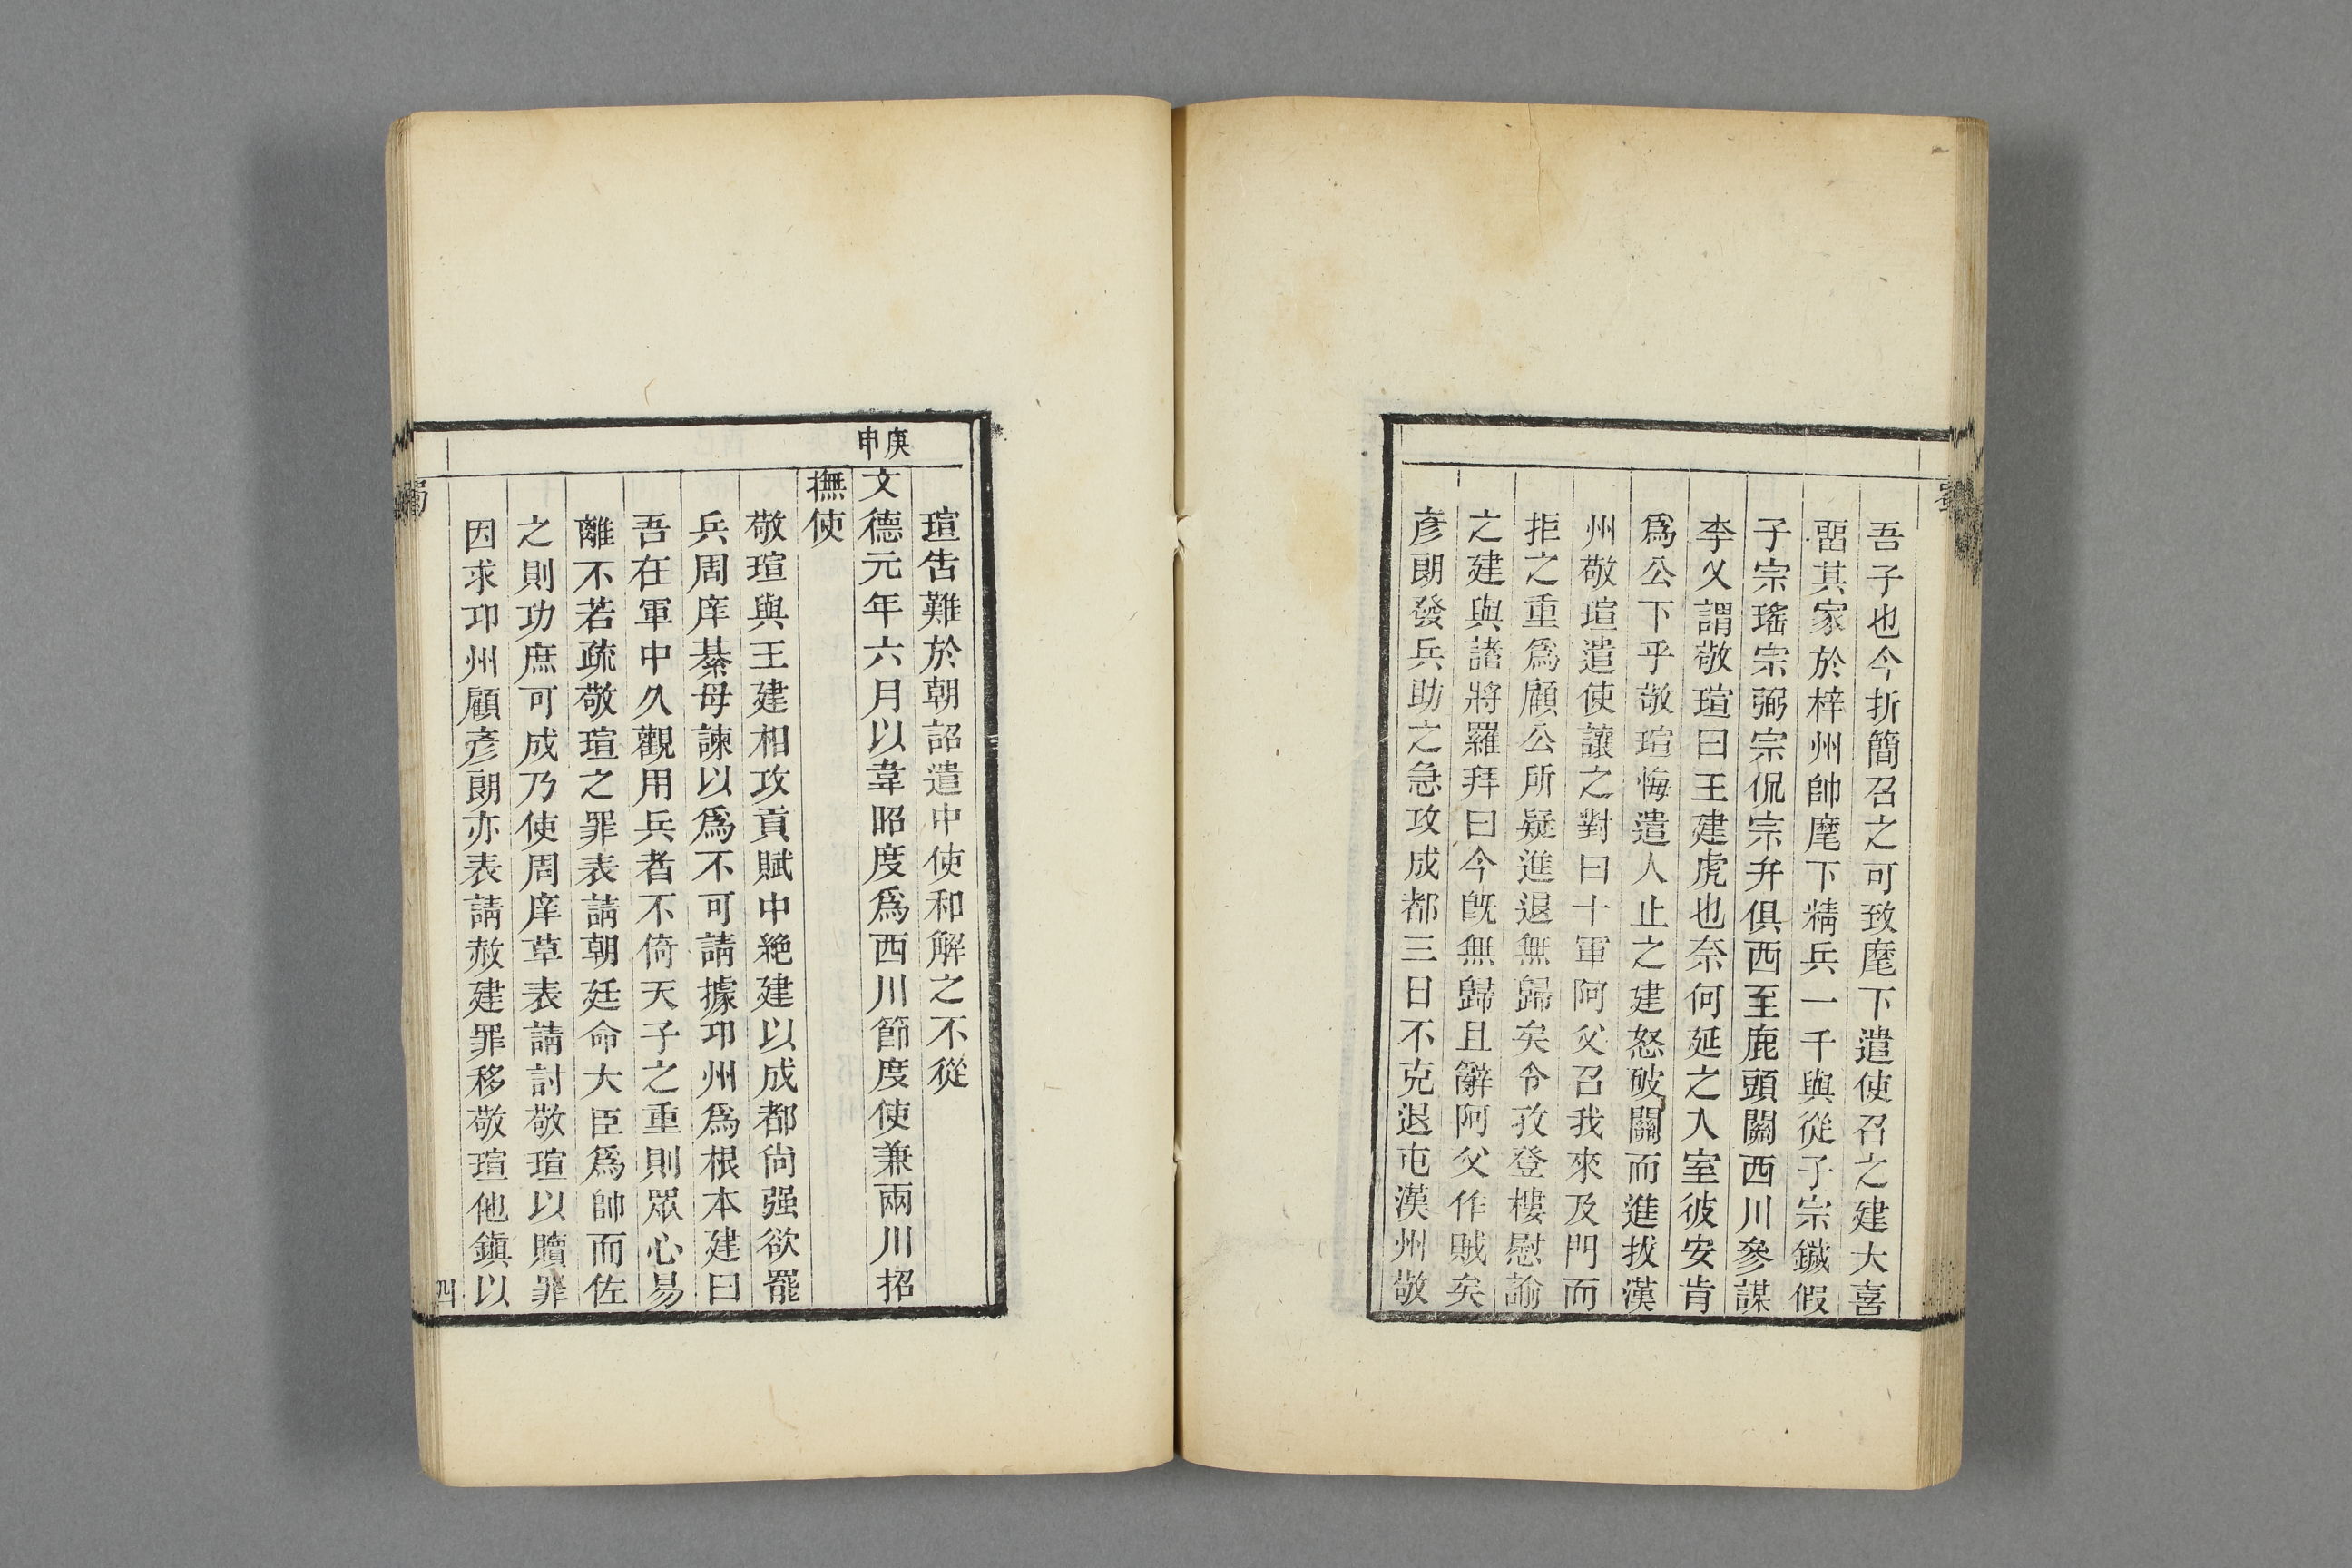 吾子也今折簡召之可致麾下遣使召之建大喜
畱其家於梓州帥麾下精兵一千與從子宗鐬假
子宗瑤宗弼宗侃宗弁俱西至鹿頭關西川參謀
李乂謂敬瑄曰王建虎也奈何延之入室彼安肯
爲公下乎敬瑄悔遣人止之建怒破關而進拔漢
州敬瑄遣使讓之對曰十軍阿父召我來及門而
拒之重爲顧公所疑進退無歸矣令孜登樓慰諭
之建與諸將羅拜曰今旣無歸且辭阿父作賊矣
彦朗發兵助之急攻成都三日不克退屯漢州敬
瑄告難於朝詔遣中使和解之不從
庚申
文德元年六月以韋昭度爲西川節度使兼兩川招
撫使
敬瑄與王建相攻貢賦中絶建以成都尚强欲罷
兵周庠綦母諫以爲不可請據邛州爲根本建曰
吾在軍中久觀用兵者不倚天子之重則眾心易
離不若疏敬瑄之罪表請朝廷命大臣爲帥而佐
之則功庶可成乃使周庠草表請討敬瑄以贖罪
因求邛州顧彦朗亦表請赦建罪移敬瑄他鎭以
四